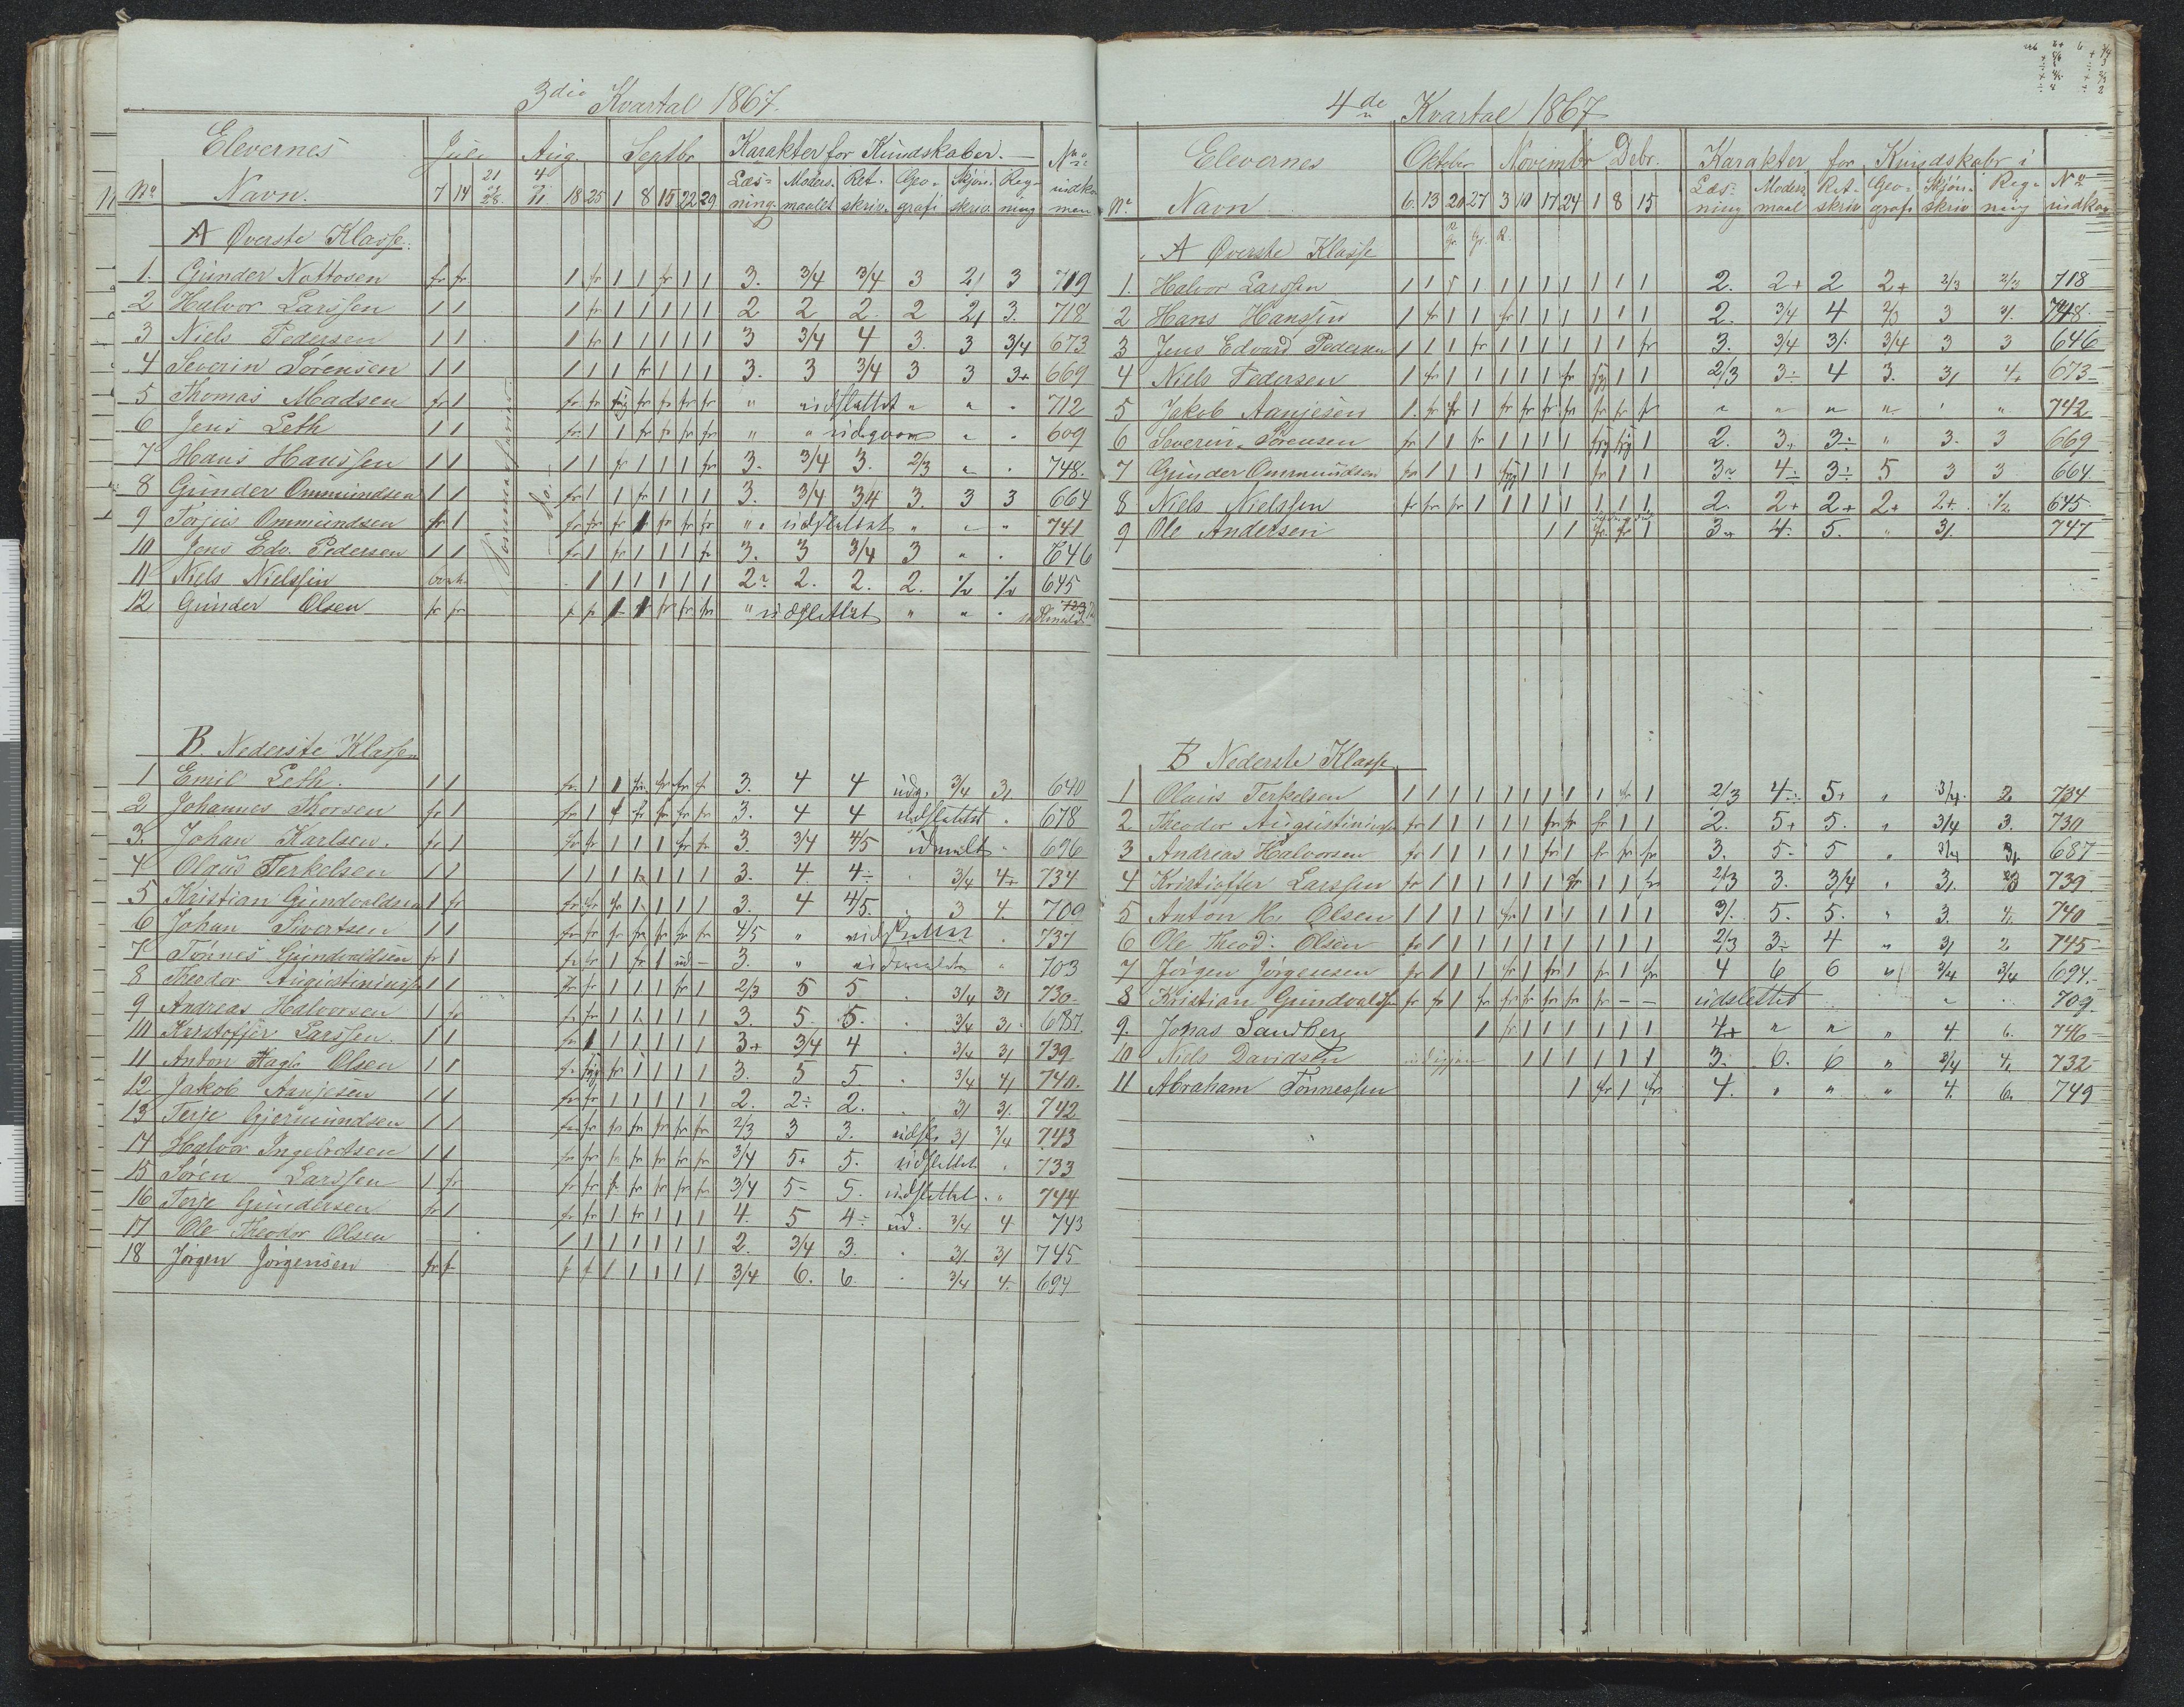 3die Kvartal 1867.
Elevernes Juli Aug. Septbr Karakter for Kundskaber. No
No Navn. 7 14 21 28 4 11 18 25 1 8 15 22 29 Læs- Moders- Ret- Geo- Skjøn- Reg- indkom
ning maalet skriv. grafi skriv. ning men
A Øverste Klasse.
1. Gunder Nottosen fr fr 1 fr 1 1 fr 1 1 3. 3/4 3/4 3 2/ 3 719
2 Halvor Larssen 1 1 1 fr 1 1 1 1 1 2 2 2. 2 2/ 3. 718
3 Niels Pedersen 1 1 1 fr 1 1 1 1 1 3 3/4 4 3. 3 3/4 673
4 Severin Sørensen 1 1 1 1 1 fr 1 1 1 3. 3 3/4 3 3 3+ 669
5 Thomas Madsen fr 1 fr fr syg fr fr fr fr " udslettet " " " 712
6 Jens Leth 1 1 fr 1 1 fr fr fr fr " " " " 609
7 Hans Hanssen 1 1 1 1 fr 1 1 1 fr 3. 3/4 3. 2/3 " " 748.
8 Gunder Ommundsen 1 1 fr 1 1 fr 1 1 1 3. 3/4 3/4 3. 3 3 664
9 Torjus Ommundsen fr 1 fr fr fr 1 fr fr fr " udslettet " " " 741
10 Jens Edv. Pedersen 1 1 fr 1 fr 1 1 1 fr 3. 3 3/4 3 " " 646
11 Niels Nielssen 1 1 1 1 1 1 2. 2. 2. 645
12 Gunder Olsen fr fr fr fr 1 1 fr fr fr " udslettet " " "
B. Nederste Klassen
1 Emil Leth. 1 1 fr 1 1 fr fr fr f 3. 4 4 udg. 3/4 3/ 640
2 Johannes Thorsen fr 1 fr 1 f fr fr fr fr 3. 4 4 udslettet " 678
3. Johan Karlsen. fr 1 fr fr 1 1 1 fr fr 3. 3/4 4/5 udmeldt " 696
4 Olaus Terkelsen 1 1 1 1 1 1 1 1 1 3. 4. 4÷ 3/4 4+ 734
5 Kristian Gundvaldsen 1 fr fr fr fr 1 1 1 1 3. 4 4/5. 3 4. 709
6 Johan Sivertsen 1 1 fr fr fr fr fr fr fr 4/5 " udslettet 737
7 Tønnes Gundvaldsen fr 1 fr fr 1 fr 1 ud - 3. " udmeldt " 703
8 Theodor Augustiniussen 1 1 fr fr 1 1 1 fr 1 2/3 5 5 3/4 3/ 730
9 Andreas Halvorsen 1 fr fr fr 1 1 1 1 1 3. 5. 5. 3/4 3/ 687.
10 Kristoffer Larssen. 1 1 fr 1 1 1 1 1 1 3+ 3/4 4 3/4 3/ 739
11 Anton Hagb. Olsen 1 1 fr syg fr 1 1 1 1 3. 5 5. 3/4 4/ 740.
12. Jakob Aanjesen 1 1 fr fr 1 1 1 1 1 2. 2÷ 2. 3/ 3/. 742
13 Terje Gjermundsen 1 1 fr fr fr fr fr fr fr 2/3 3 3. udsl. 3/ 3/4 743
14 Halvor Ingebretsen 1 1 fr fr fr fr fr fr fr 3/4 5+ 5. udslettet 733
15 Søren Larssen 1 fr fr fr fr fr fr fr fr 3/4 5- 5. udslettet " 744
16 Terje Gundersen fr 1 fr fr 1 fr 1 1 1 4. 5 4÷ ud. 3/4 4 743
17 Ole Theodor Olsen 1 1 1 1 1 1 1 2. 3/4 3. 3/. 3/ 745
18 Jørgen Jørgensen fr fr f f 1 1 1 1 1 3/4 6. 6. 3/4 4. 694
4de Kvartal 1867
Elevernes Oktober Novembr Debr. Karakter for Kundskabr i
No Navn 6. 13 20 27 3 10 17 24 1 8 15 Læs- Moders Ret- Geo- Skjøn- Reg- No
ning maal skriv grafi skriv ning indkom
A Øverste Klasse
1. Halvor Larssen 1 1 1 1 1 1 1 1 1 1 2. 2+ 2 2+ 2/3 2/3 718
2 Hans Hanssen 1 fr 1 1 fr 1 1 1 1 1 1 2. 3/4 4 2/3 3 3/. 748.
3 Jens Edvard Pedersen 1 1 1 fr 1 1 1 1 1 1 fr 3. 3/4 3/. 3/4 3 3 646
4 Niels Pedersen 1 fr 1 1 1 1 1 fr syg 1 1 2/3 3÷ 4 3. 3/ 4+ 673
5 Jakob Aanjesen 1. fr fr 1 fr fr fr fr fr fr fr " " " " " " 742
6 Severin Sørensen fr 1 1 fr 1 1 1 1 syg syg 1 2. 3+ 3÷ " 3. 3 669
7 Gunder Ommundsen fr 1 1 1 syg 1 1 1 fr 1 1 3÷ 4÷ 3÷ 5 3 3 664.
8 Niels Nielssen fr fr fr 1 1 1 1 1 1 1 1 2. 2+ 2+ 2+ 2+ 1/2 645
9 Ole Andersen 1 1 fr fr 1 3+ 4. 5. " 3/. 747
B Nederste Klasse
1 Olaus Terkelsen 1 1 1 1 1 1 1 1 1 fr 1 2/3 4÷ 5+ " 3/4. 2 734
2. Theodor Augustiniussen fr 1 1 1 1 1 fr fr fr 1 1 2. 5+ 5. " 3/4 3. 730
3 Andreas Halvorsen fr 1 1 1 1 1 fr 1 fr fr fr 3. 5- 5 " 3/4 3/. 687
4 Kristoffer Larssen fr 1 1 1 1 1 1 fr 1 1 fr 2/3 3. 3/4 " 3/. 2/3 739
5 Anton H. Olsen 1 1 1 1 fr 1 1 1 1 1 1 3/. 5. 5. " 3. 740
6 Ole Theod: Olsen fr 1 1 1 1 1 1 1 1 1 1 2/3 3÷ 4 " 3/ 2 745
7 Jørgen Jørgensen fr 1 1 1 fr 1 fr 1 fr 1 fr 4 6 6 " 3/4 3/4 694.
8 Kristian Gundvalds fr fr 1 fr fr fr fr fr fr - - udslettet " 709
9. Jonas Sandberg 1 fr 1 1 1 1 1 1 4+ " " " 4. 6. 746
10 Niels Davidsen 1 1 1 1 1 1 3. 6. 6 " 3/4 732
11 Abraham Tønnessen 1 fr 1 fr 4. " " " 4. 6. 749